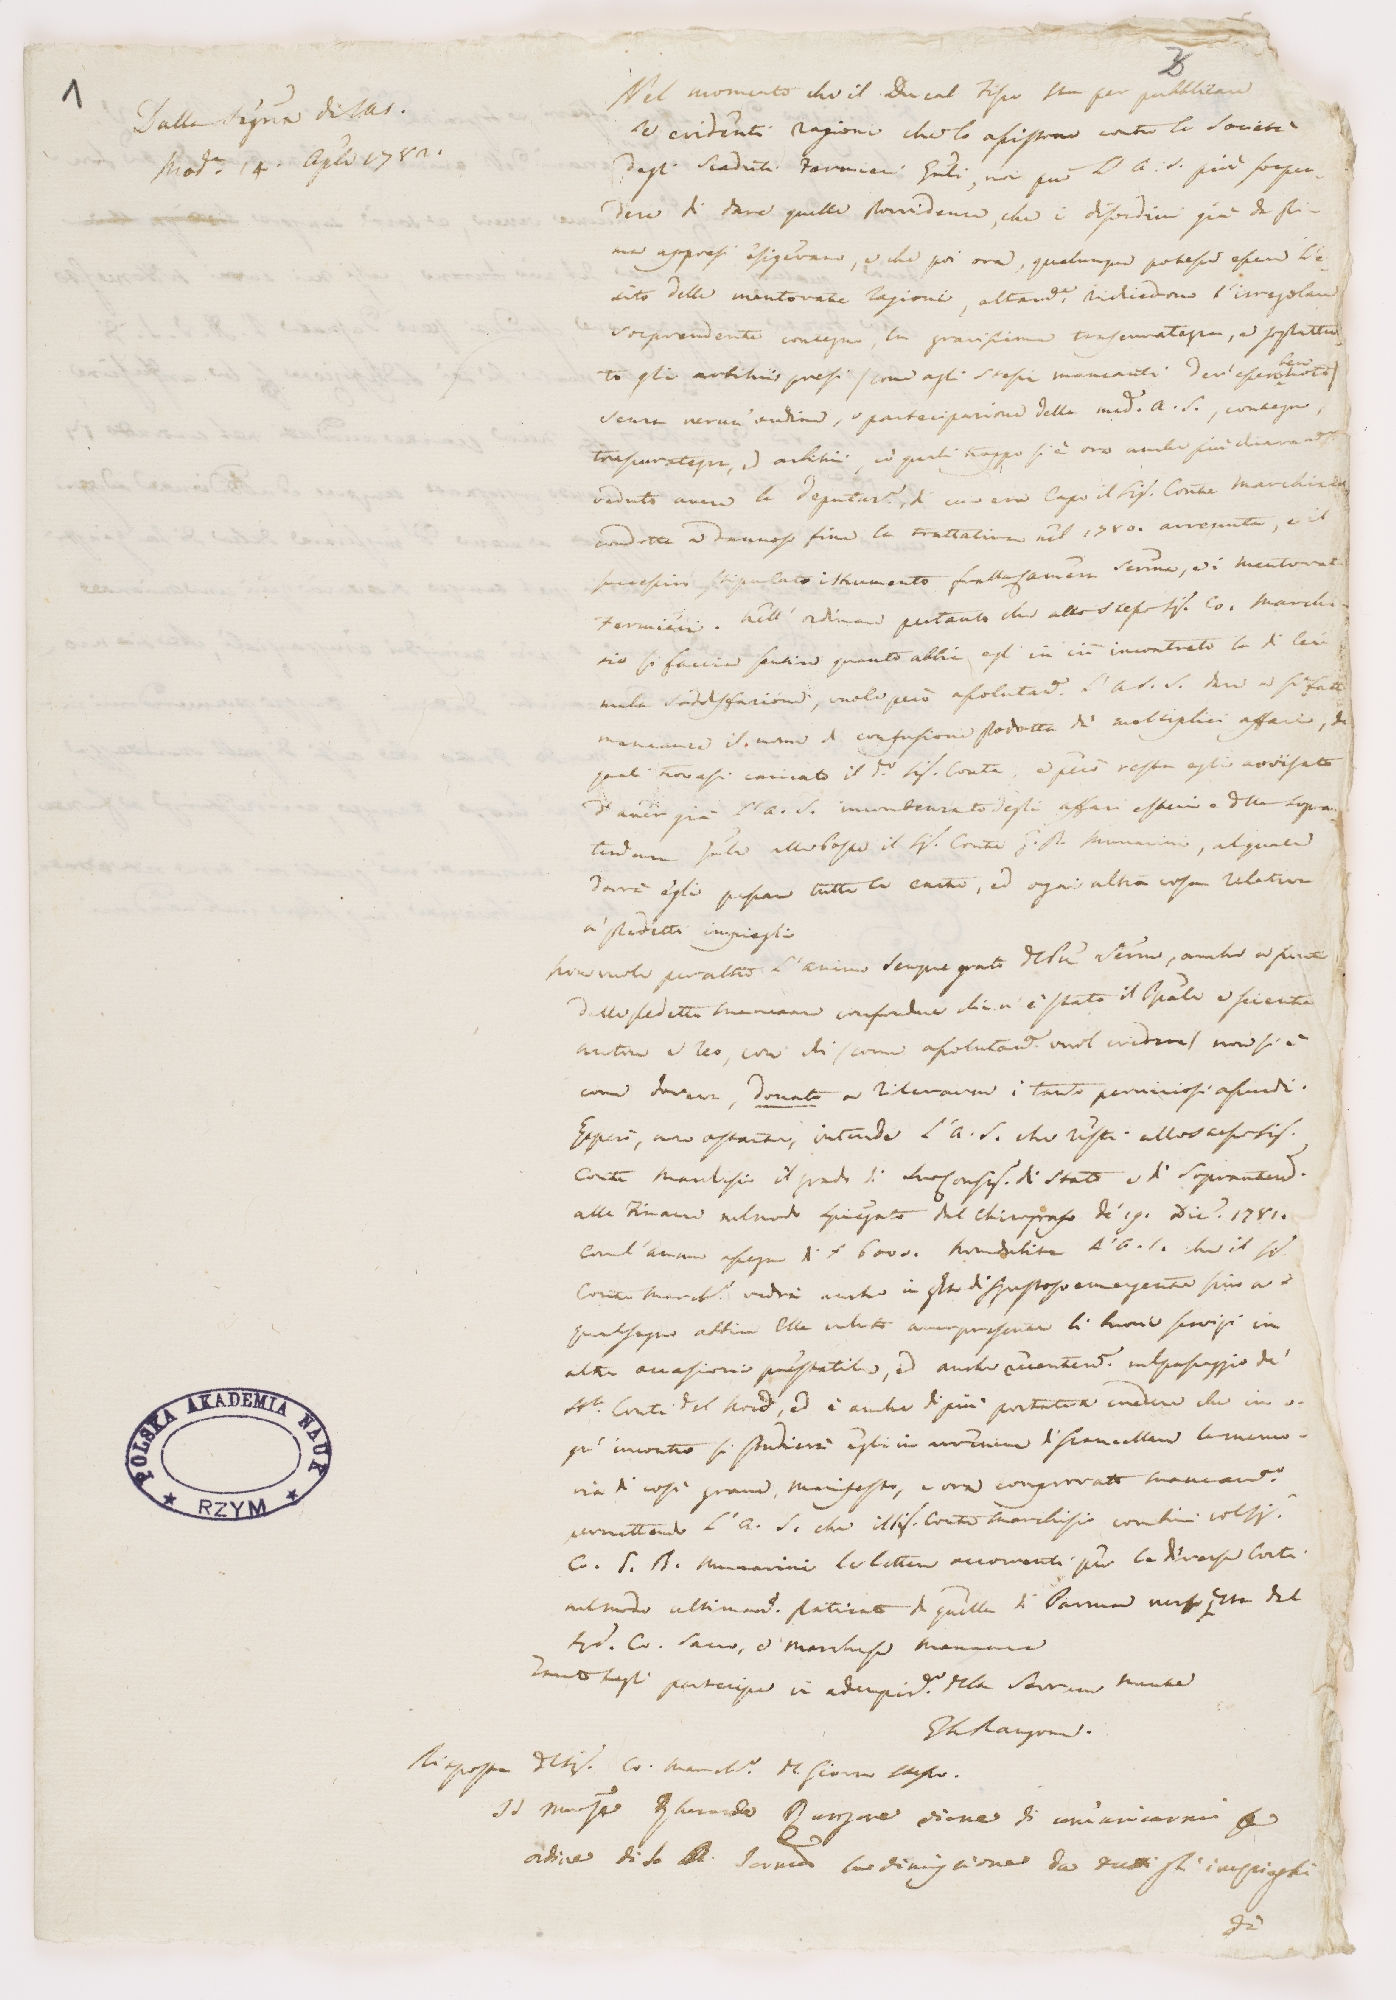 1
Dalla Segria di Stato.
Mod.a 14. Aple 1782.
Nel momento che il Ducal Fisco sta per pubblicare
le evidenti ragioni che lo assistono contro la Società
degli Scaduti Fermieri Gnli, non può L'A.S. più sospen-
dere di dare quelle Provvidenze, che i disordini già da pri-
ma appresi esigevano, e che poi ora, qualunque potesse essere l'e-
sito delle mentovate ragioni, altamte richiedono l'irregolare
sorprendente contegno, la gravissima trascuratezza, e soprattut-
to gli arbitrii presi (come agli stessi mancanti dev'essere ben noto)
senza verun ordine, o partecipazione della medª A.S., contegno,
trascuratezza, ed arbitrii, co' quali troppo si è ora anche più chiaramte
veduto avere la Deputazne, di cui era Capo il Sigr Conte Marchisio
condotta a dannoso fine la trattativa nel 1780. avvenuta, e il
successivo stipulato istrumento fralla Camera Serma, e i mentovati
Fermieri. Nell' ordinare pertanto che allo stesso Sigr Co. Marchi-
sio si faccia sentire quanto abbia egli in ciò incontrato la di Lei
mala soddisfazione, vuole però assolutamte L'A.S.S. dare a sì fatte
mancanze il nome di confusione prodotta da' moltiplici affari, de'
quali trovasi caricato il do Sigr Conte, e però resta egli avvisato
d'aver già L'A.S. incombenzato degli affari esteri e della Sopra-
tendenza Gnle alle Poste il Sigr Conte G. B. Munarini, al quale
dovrà egli passare tutte le carte, ed ogni altra cosa relativa
a' predetti impieghi
Non vuole peraltro L'animo sempre grato del Pne Sermo, anche a fronte
delle predette mancanze confondere chi n'è stato il Pnpale e sciente
autore e reo, con chi (come assolutamte vuol credere) non si è
come doveva, donato a rilevarne i tanto perniciosi assurdi.
Epperò, non ostante, intende L'A.S. che resti allo stesso Sigr
Conte Marchisio il grado di suo Consigr di Stato e di Sopraintende
alle Finanze nel modo spiegato dal chirografo de' 19. Dice 1781.
con l'annuo assegno di £ 6000. Non dubita L'A.S. che il Sigr
Conte Marchio vedrà anche in qto disgustoso emergente sino a
qual segno abbia Ella voluto aver presenti li buoni servigi in
altre occasioni prestatile, ed anche recentemte nel passaggio de'
Sigri Conti del Nord, ed è anche di più portata a credere che in o-
gn' incontro si studierà egli in avvenire di scancellare la memo-
ria di così grave, manifesta, e ora comprovata mancanza.
permettendo L'A.S. che il Sigr Conte Marchisio combini col Sigr
Co. G. B. Munarini le lettere occorrenti per le diverse Corti
nel modo ultimamte praticato di quella di Parma verso qta del
Sigr Co. Sacco, e Marchese Manara
Tanto segli partecipa in adempimto della Sovrana Mente
Gh Rangone.
Risposta del Sigr Co. Marchio del Giorno stesso.
Il Marchse Gherardo Rangone viene di comunicarmi per
ordine di S. A. Serma la dimissione da tutti gli impieghi
di
POLSKA AKADEMIA NAUK
RZYM